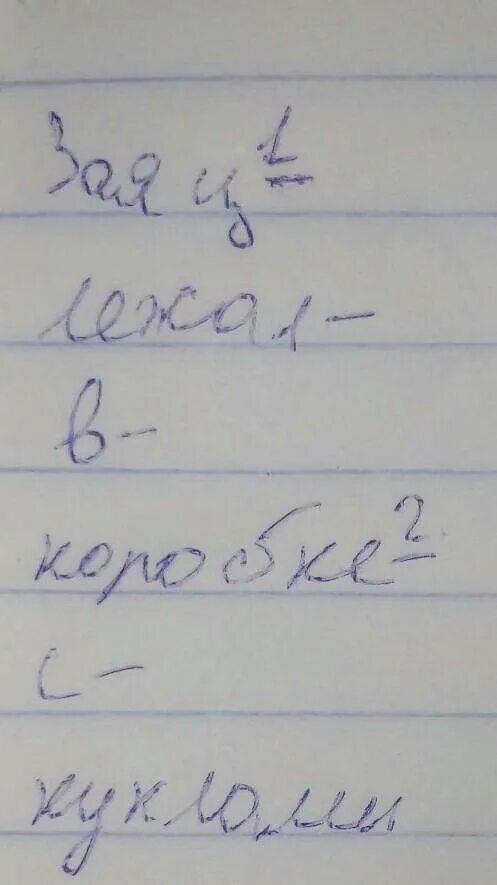 Заяц 1
лежал -
в -
коробке 2
с -
куклами